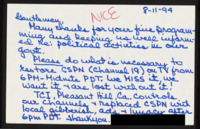 8-11-94
NICE
Gentlemen,
Many thanks for your fine program-
ming and keeping us well inform-
ed re: political activities in our
govt.
Please do what is necessary to
restore CSPN (Channel 19) on TV from
6PM-Midnite, PDT. We miss it,
want it & are lost without it!
TCI, Pleasant Hill Ca. controls
our channels & replaced CSPN with
local after
6pm PDT. Thankyou.